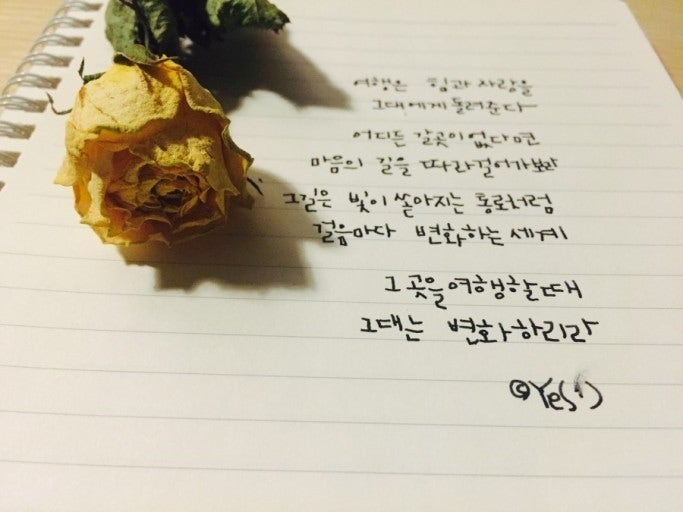 여행은 힘과 사랑을
그대에게 돌려준다
어디든 갈곳이 없다면
마음의 길을 따라걸어가보라
그길은 빛이 쏟아지는 통로처럼
걸음마다 변화하는 세계
그곳을 여행할때
그대는 변화하리라
©Yes